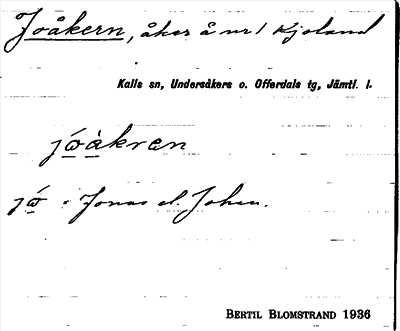 Joåkern, åker å nr 1 Kjoland
Kalls sn, Undersåkers o. Offerdals tg, Jämtl. l.
jóàkren
jó : Jonas el. Johan.
BERTIL BLOMSTRAND 1936